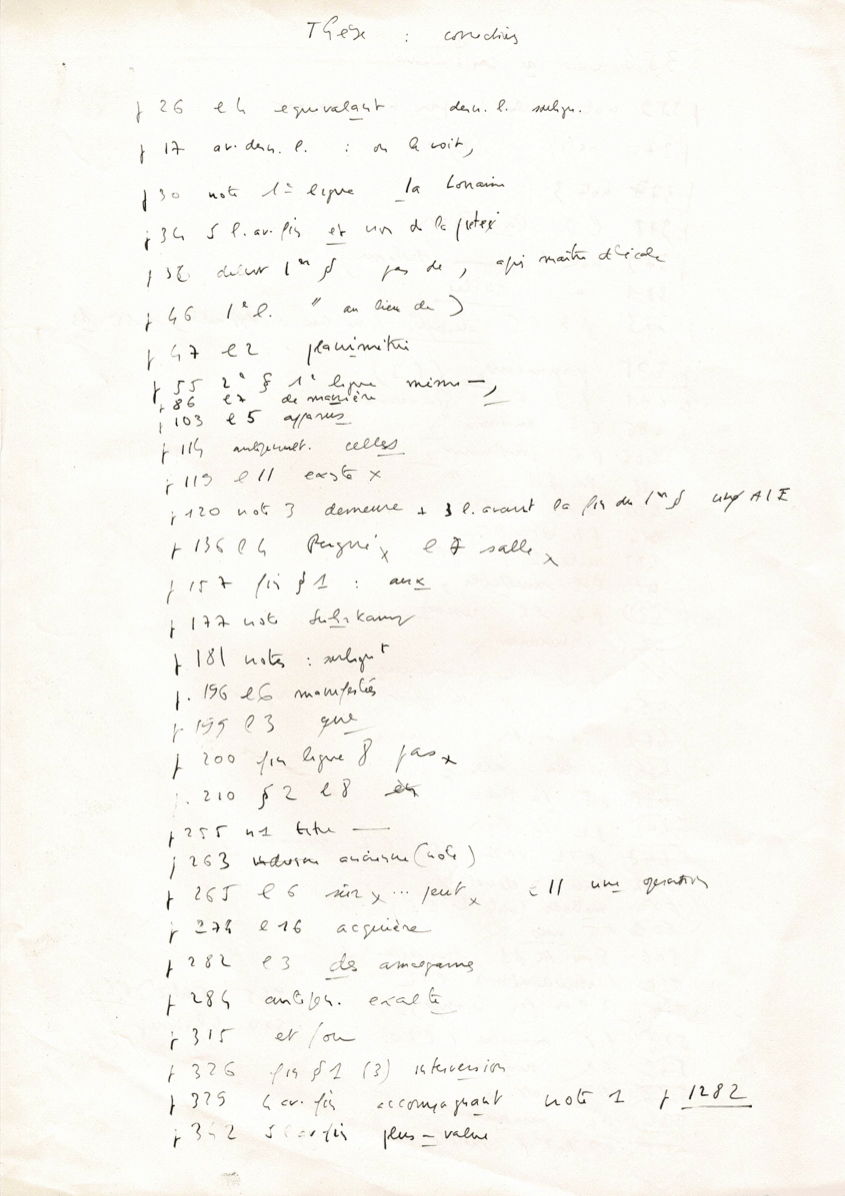 Thèse : corrections
p 26 l 4 equivalant dern. l. soulign.
p 17 av. dern. l. : on le voit,
p 30 note 1e ligne la Lorraine
p 34 5 l. av. fin et non de la
début 1er § pas de , après maître d'école
p 46 1e l. " au lieu de )
p 47 l 2 planimétrie
p 55 2e § 1e ligne mêmes –,
p 86 l 7 de manière
p 103 l 5 apparus
p 114 antépenult. celles
p 119 l 11 existe x
p 120 note 3 demeure + 3 l. avant la fin du 1er § AIE
p 136 l 4 x l 7 salle x
p 157 fin § 1 : aux
p 177 note Suhrkamp
p 181 notes : soulignt
p. 196 l 6 manifestés
p 199 l 3 que
p 200 fin ligne 8 pas x
p. 210 § 2 l 8
p 255 n 1 titre —
p 263 anonyme (note)
p 265 l 6 sûr x ... peut x l 11 une operation
p 274 l 16 acquière
p 282 l 3 des
p 284 antépen. exalte
p 315 et/ou
p 326 fin § 1 (3) interversion
p 329 4 av. fin accompagnant note 1 p 1282
p 342 5 l av fin plus – value